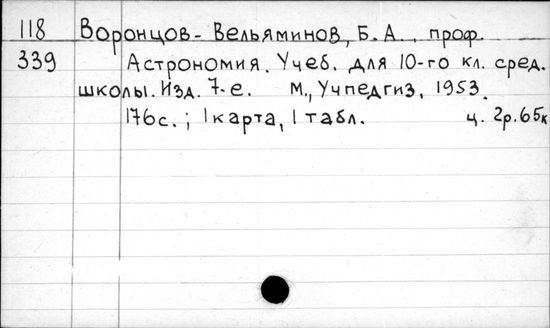 118 Воронцов-Вельяминов, Б. А., проф.
339 Астрономия. Учеб. для 10-го кл. сред.
школы. Изд. 7-е. М., Учпедгиз, 1953.
176с.; 1 карта, 1 табл. ц. 2р.65к